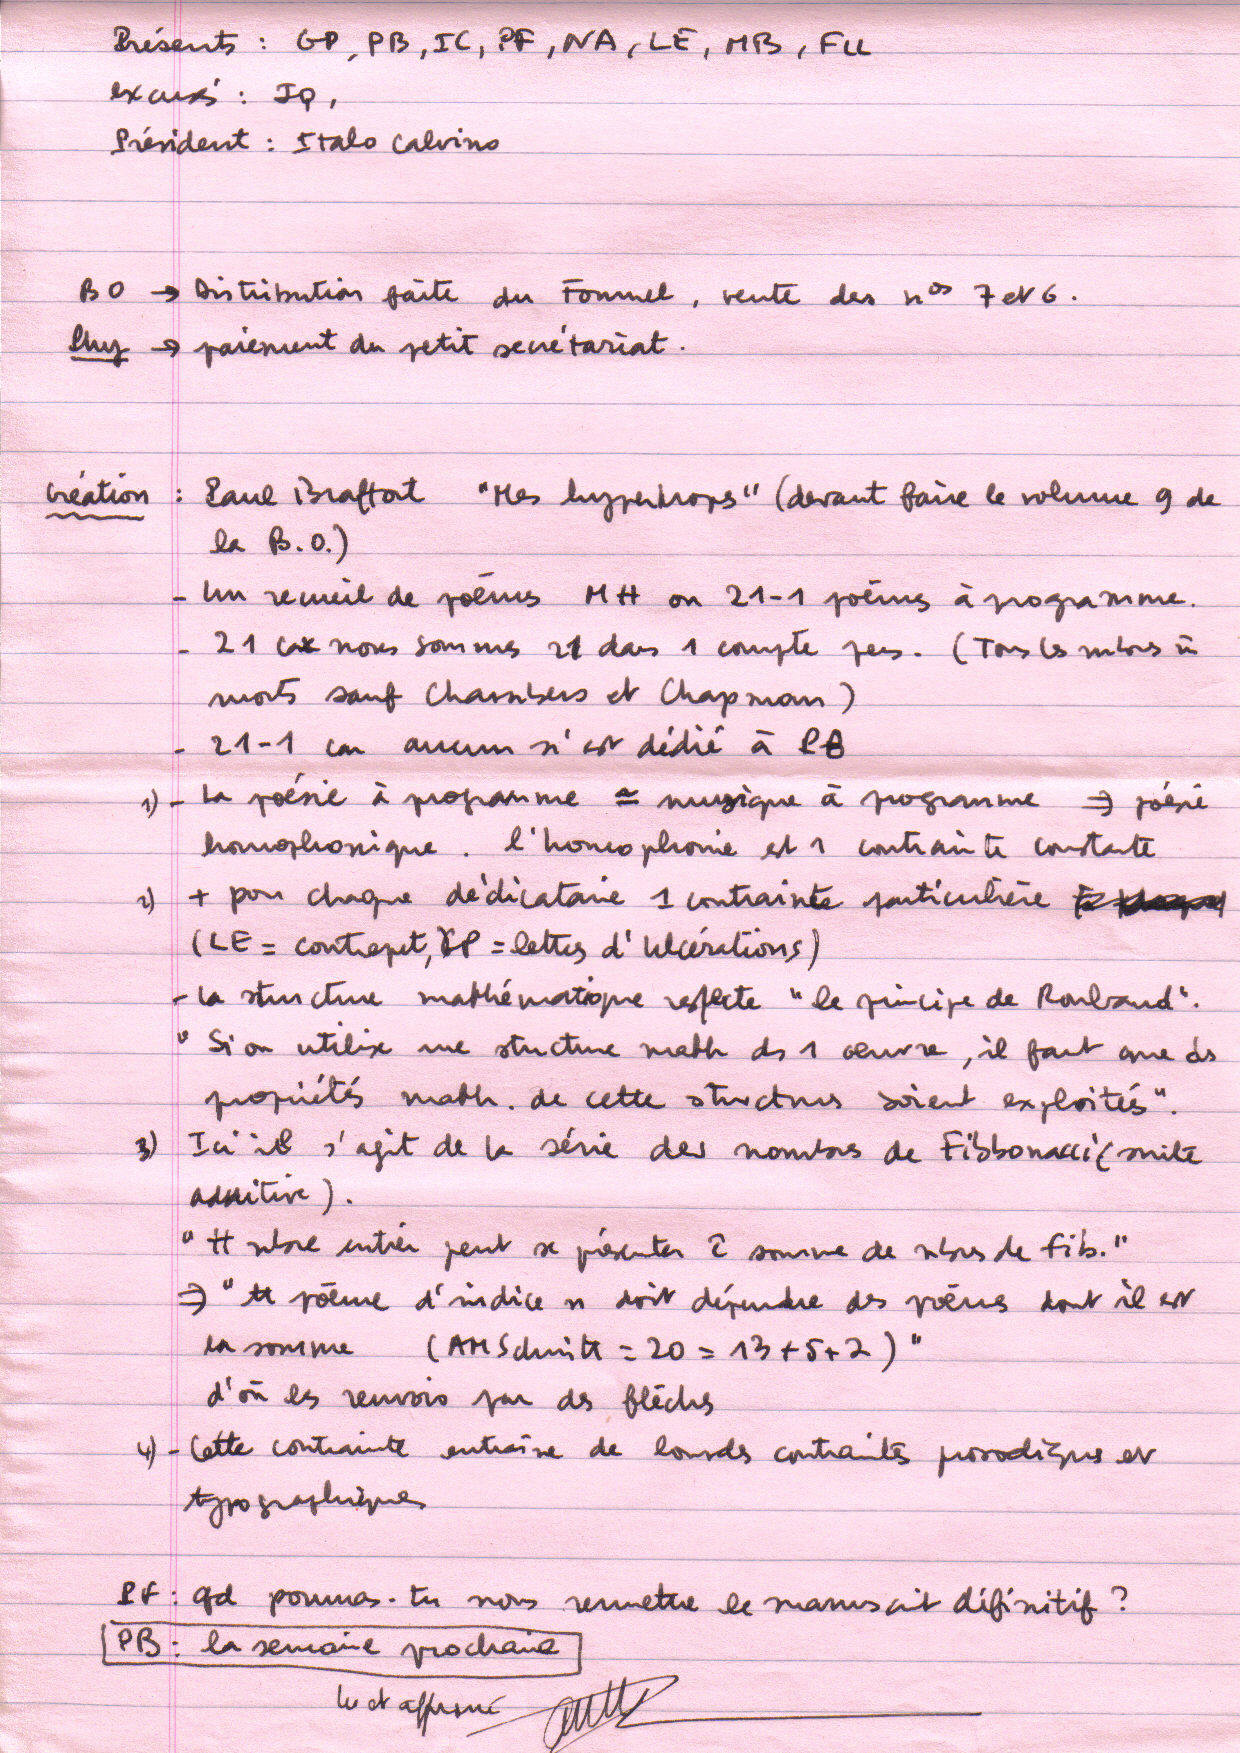 Présents : GP, PB, IC, PF, NA, LE, MB, FLL
excusés : JQ,
Président : Italo Calvino
BO → Distribution faite du Fournel, vente des nos 7 et 6.
→ paiement du petit secrétariat.
Création : Paul Braffort "Mes hypertrops" (devant faire le volume 9 de
la B.O.)
- Un recueil de poèmes MH ou 21-1 poèmes à programme.
- 21 car nous sommes 21 dans 1 compte pers. (Tous les mbres
morts sauf Chambers et Chapman)
- 21-1 car aucun n'est dédié à PB
1) - La poésie à programme ≃ musique à programme ⇒ poésie
homophonique. l'homophonie est 1 contrainte constante
2) + pour chaque dédicataire 1 contrainte particulière
(LE = contrepet, GP = lettres d'Ulcérations)
- La structure mathématique respecte "le principe de Roubaud".
" Si on utilise une structure math ds 1 oeuvre, il faut que ds
propriétés math. de cette structures soient exploités".
3) Ici il s'agit de la série des nombres de Fibbonacci (suite
additive).
" tt nbre entier peut se présenter somme de nbres de Fib."
⇒ " tt poème d'indice n doit dépendre des poèmes dont il est
la somme (AMSchmitt = 20 = 13+5+2) "
d'où les renvois par des flèches
4) - Cette contrainte entraîne de lourdes contraintes prosodiques et
typographiques
PF : qd pourras-tu nous remettre le manuscrit définitif ?
PB : la semaine prochaine
lu et approuvé